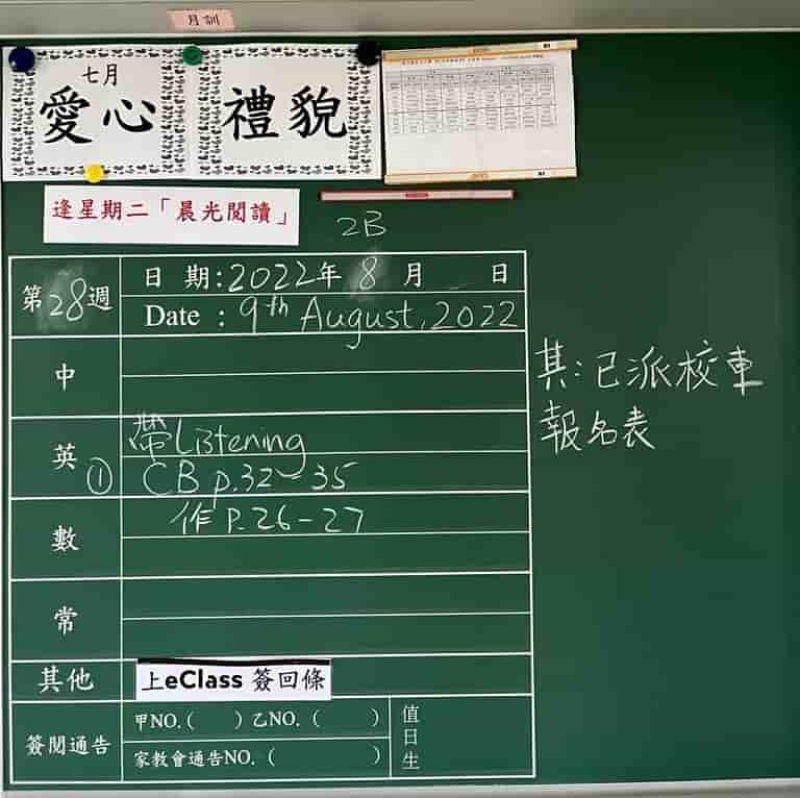 月訓
七月
愛心
禮貌
逢星期二「晨光閱讀」
2B
第28週
日 期:2022年 8 月 日
Date : 9th August, 2022
中
英
帶Listening
① CB p.32-35
數
作 P.26-27
常
其他
上eClass 簽回條
簽閱通告
甲NO.( ) 乙NO. ( )
家教會通告NO. ( )
值日生
其:已派校車
報名表